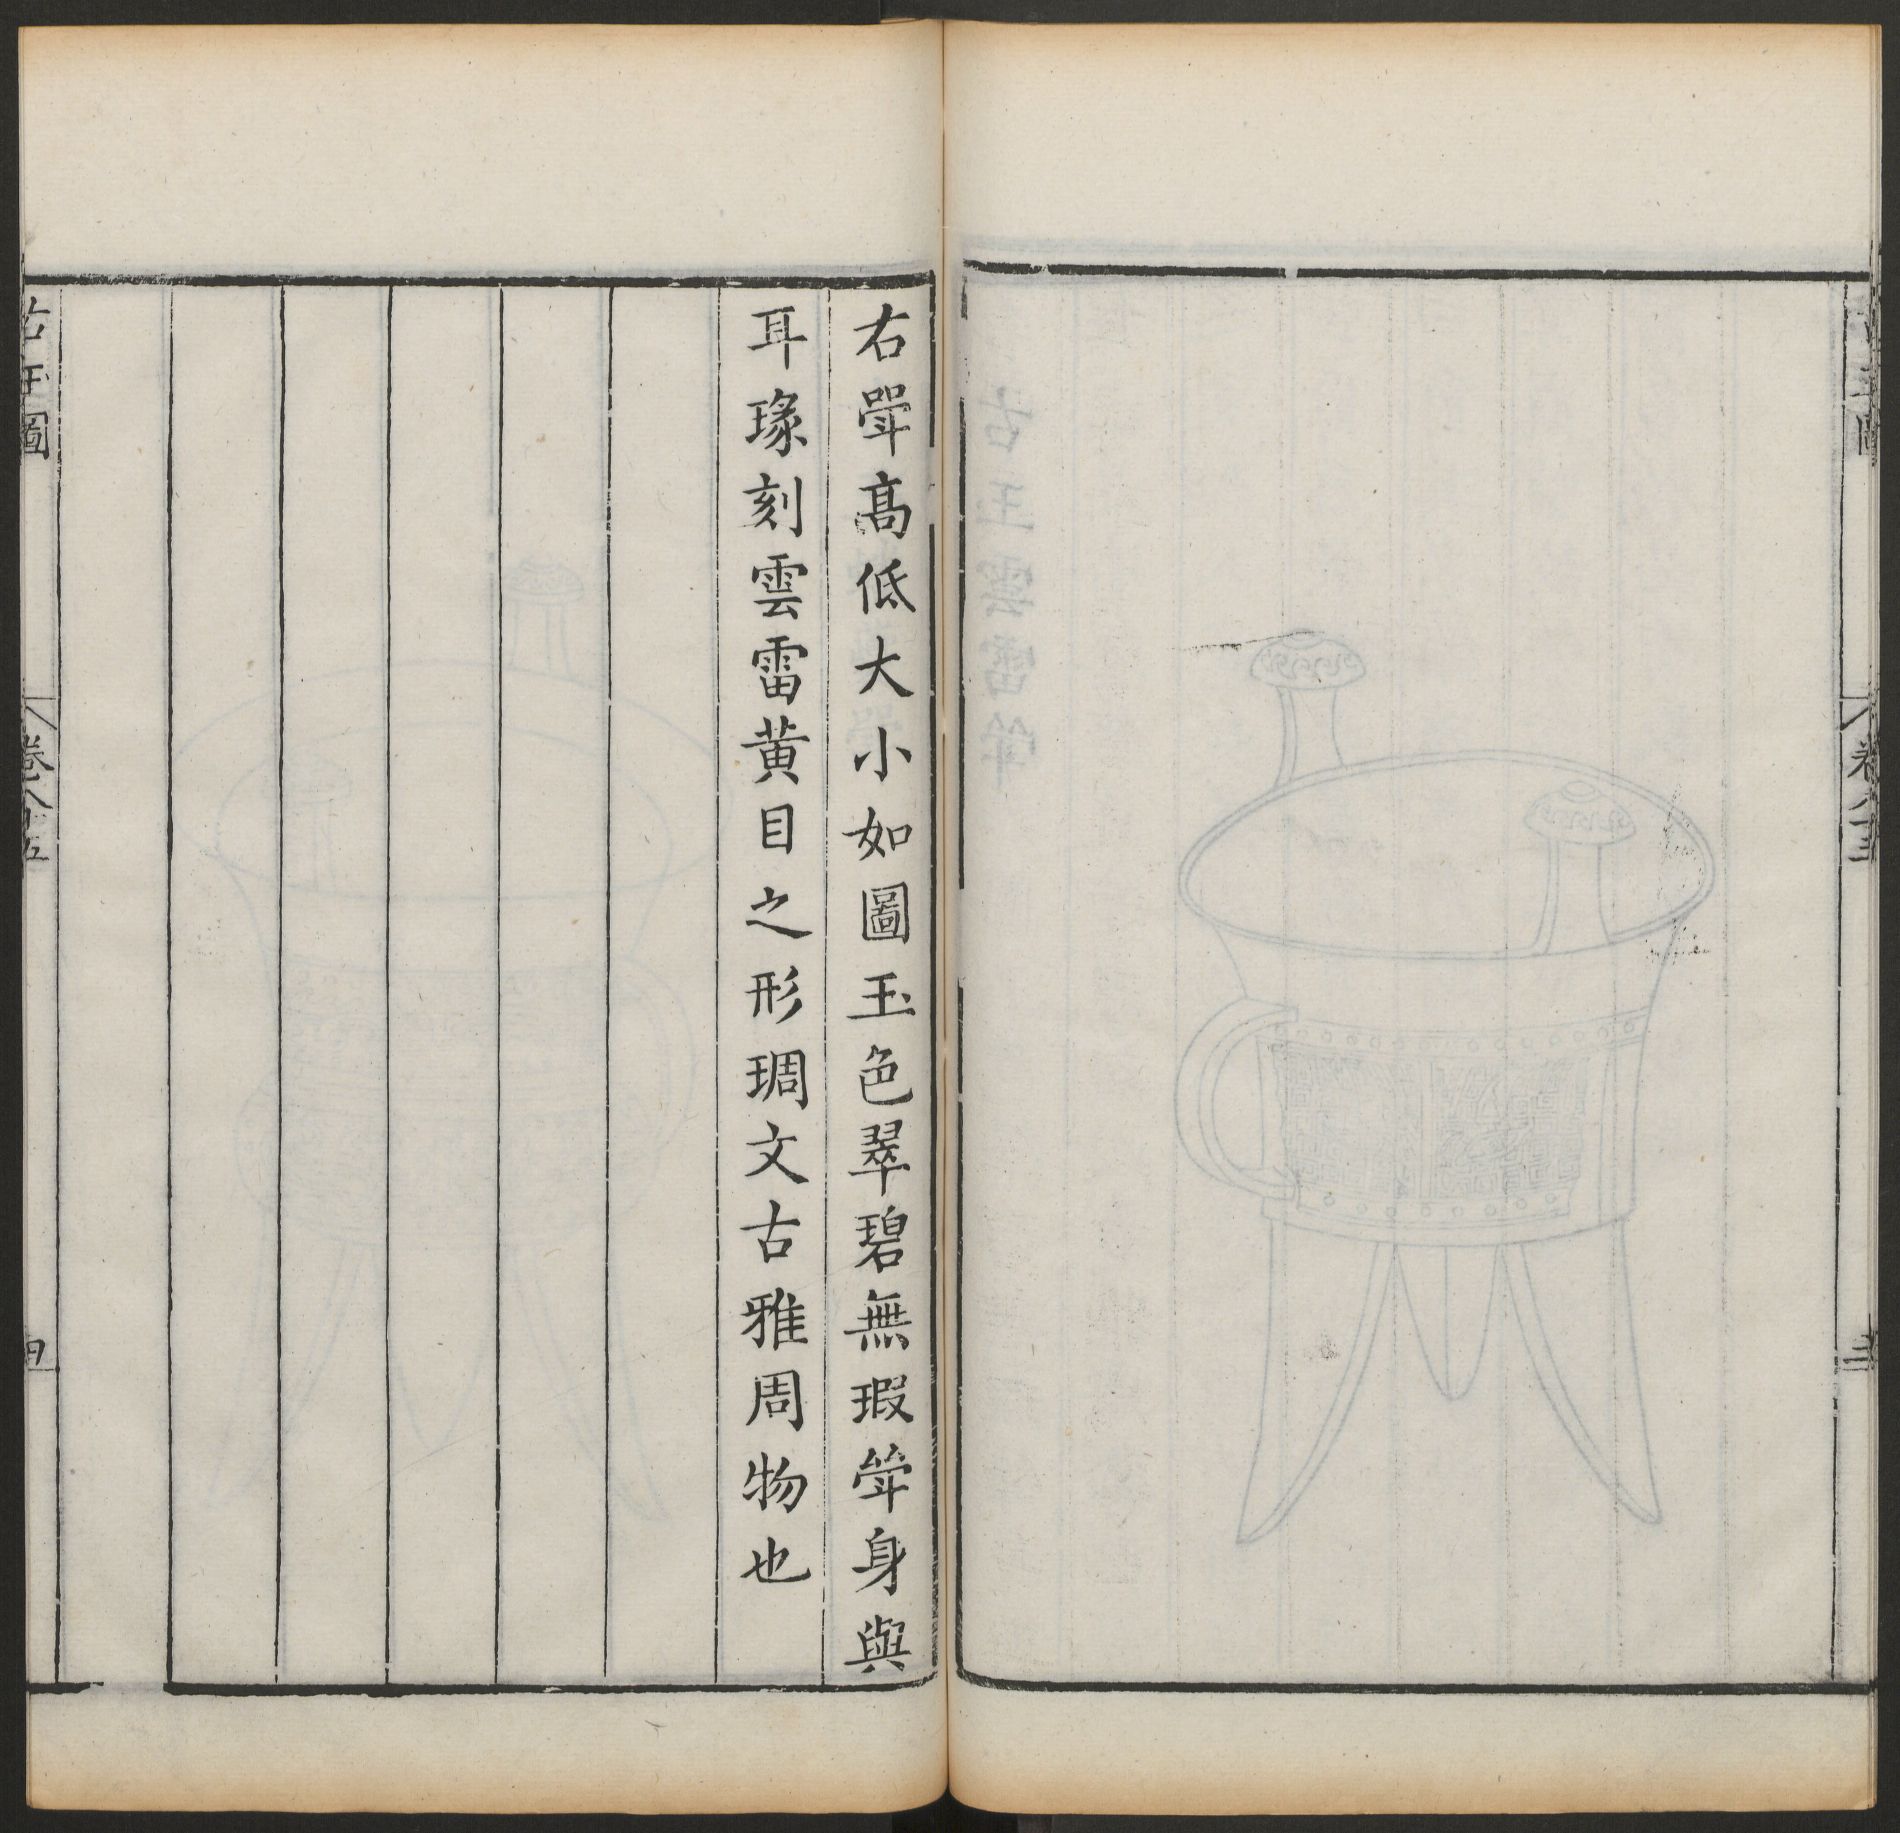 右斝高低大小如圖玉色翠碧無瑕斝身與
耳瑑刻雲雷黃目之形琱文古雅周物也
古玉圖
卷八十五